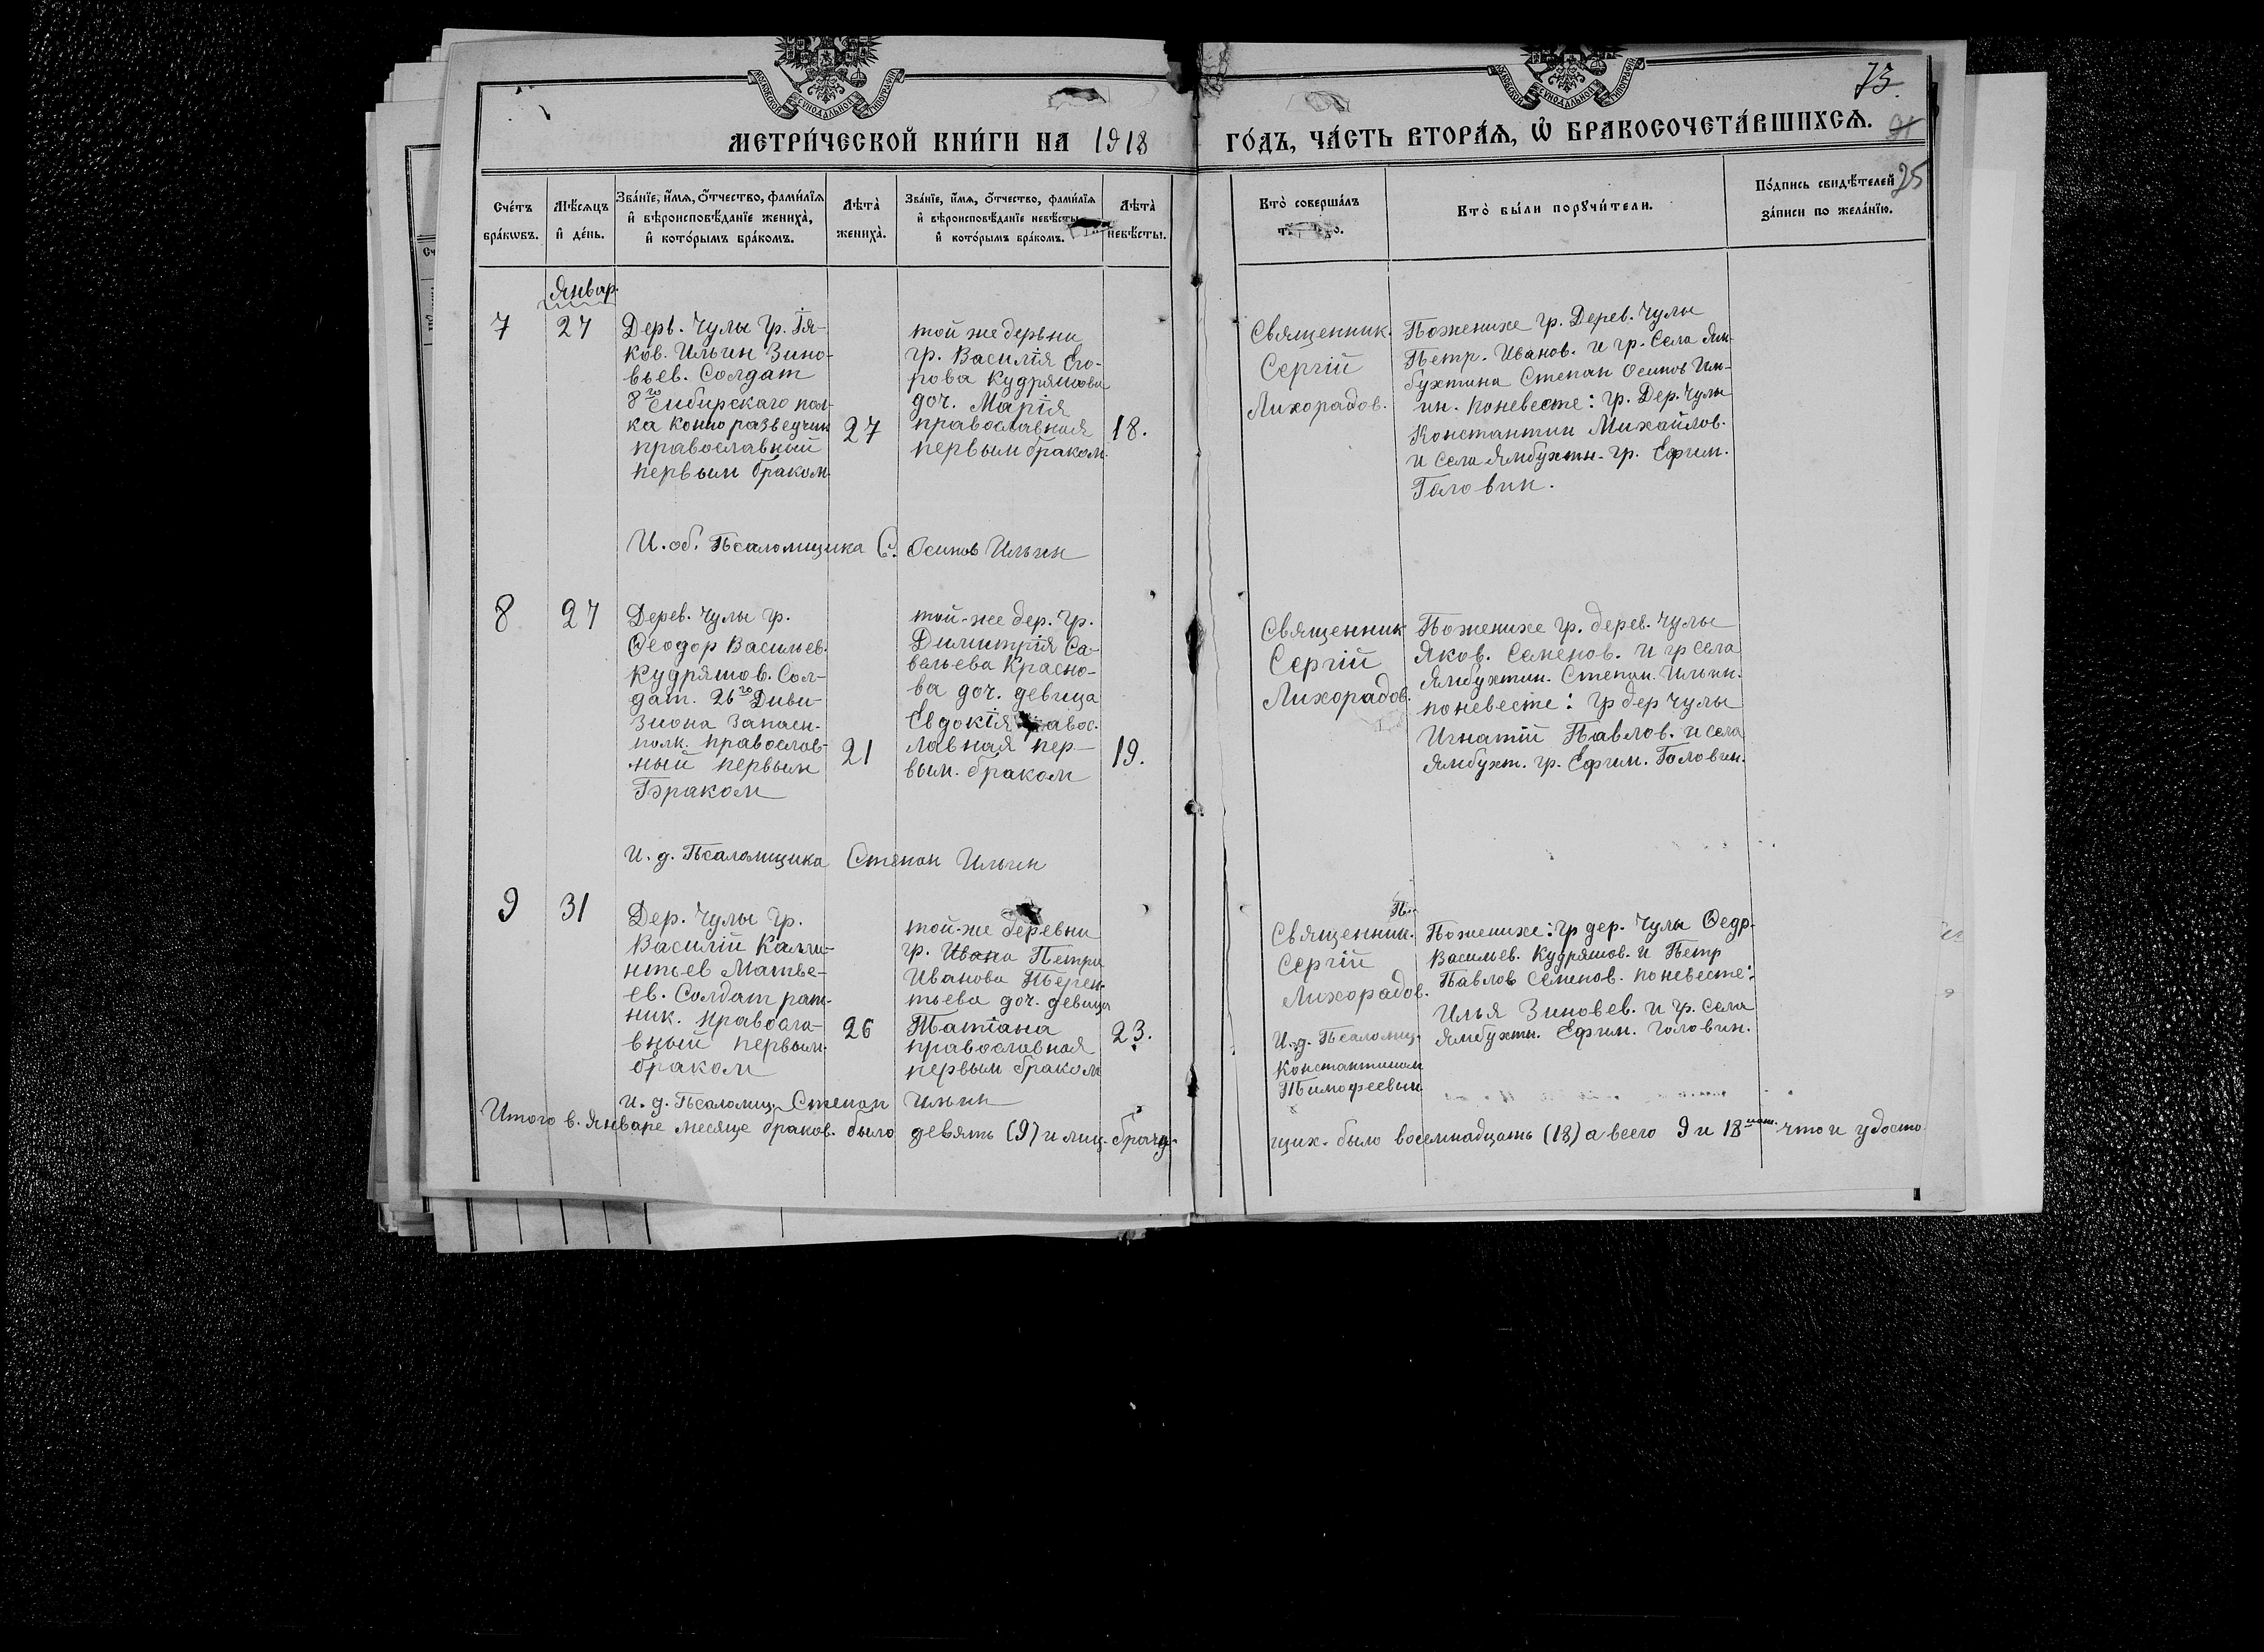 МЕТРИ́ЧЕСКОЙ КНИ́ГИ НА 1918
ГО́ДЪ, ЧА́СТЬ ВТОРА́Ѧ, Ѽ БРАКОСОЧЕТА́ВШИХСѦ.
75.
25
Сче́тъ бра́кѡвъ.
Мѣ́сѧцъ и҆ де́нь.
Зва́нїе, и҆́мѧ, ѻ҆́тчество, фами́лїѧ и҆ вѣроисповѣ́данїе жениха̀, и҆ кото́рымъ бра́комъ.
Лѣта̀ жениха̀.
Зва́нїе, и҆́мѧ, ѻ҆́тчество, фами́лїѧ и҆ вѣроисповѣ́данїе невѣ́сты и҆ кото́рымъ бра́комъ.
Лѣта̀ невѣ́сты.
Кто̀ соверша́лъ
Кто̀ бы́ли порꙋчи́тели.
По́дпись свидѣ́телей за́писи по жела́нїю.
Январ.
7
27
Дерв. Чулы гр.
ков. Ильин Зино-
вьев. Солдат
8го Сибирскаго пол-
ка конно разведчик
православный
первым браком
27
той же дервни
гр. Василія Его-
рова Кудряшова
доч. Марія
православная
первым браком.
18.
Священник.
Сергій
Лихорадов.
По женихе гр. Дерев. Чулы
Петр. Иванов. и гр. Села Ям-
бухтина Степан Осипов Иль-
ин. по невесте: гр. Дер. Чулы
Константин Михайлов.
и Села Ямбухтн. гр. Ефим.
Головин.
И. об. Псаломщика С. Осипов Ильин
8
27
Дерев. Чулы гр.
Ѳеодор Васильев.
Кудряшов. Сол-
дат. 26го Диви-
зиона Запасн.
полк. православ-
ный первым
Браком
21
той-же дер. гр.
Димитрія Са-
вельева Красно-
ва доч. девица
Евдокія правос-
лавная пер-
вым. браком
19.
Священник
Сергій
Лихорадов.
По женихе гр. дерев. Чулы
Яков. Семенов. и гр села
Ямбухтин. Степан. Ильин.
по невесте: гр дер Чулы
Игнатій Павлов. и села
Ямбухт. гр. Ефим. Головин.
И. д. Псаломщика Степан Ильин
9
31
Дер. Чулы гр.
Василій
Матве-
ев. Солдат рат-
ник. правосла-
вный первым.
браком
26
той-же деревни
гр. Ивана Петра
Иванова Терен-
тьева доч. девица
Татіана
православная
первым браком
23.
Священник.
Сергій
Лихорадов.
И. д. Псаломщ.
Константином
Тимофеевым
По женихе: гр дер. Чулы Ѳедр.
Васильев. Кудряшов. и Петр
Павлов Семенов. по невесте:
Илья Зиновев. и гр. Села
Ямбухтн. Ефим. Головин.
и. д. Псаломщ. Степан Ильин
Итого в. Январе месяце браков. было девять (9) и лиц. брачу-
щих. было восемнадцать (18) а всего 9 и 18 что и удосто-